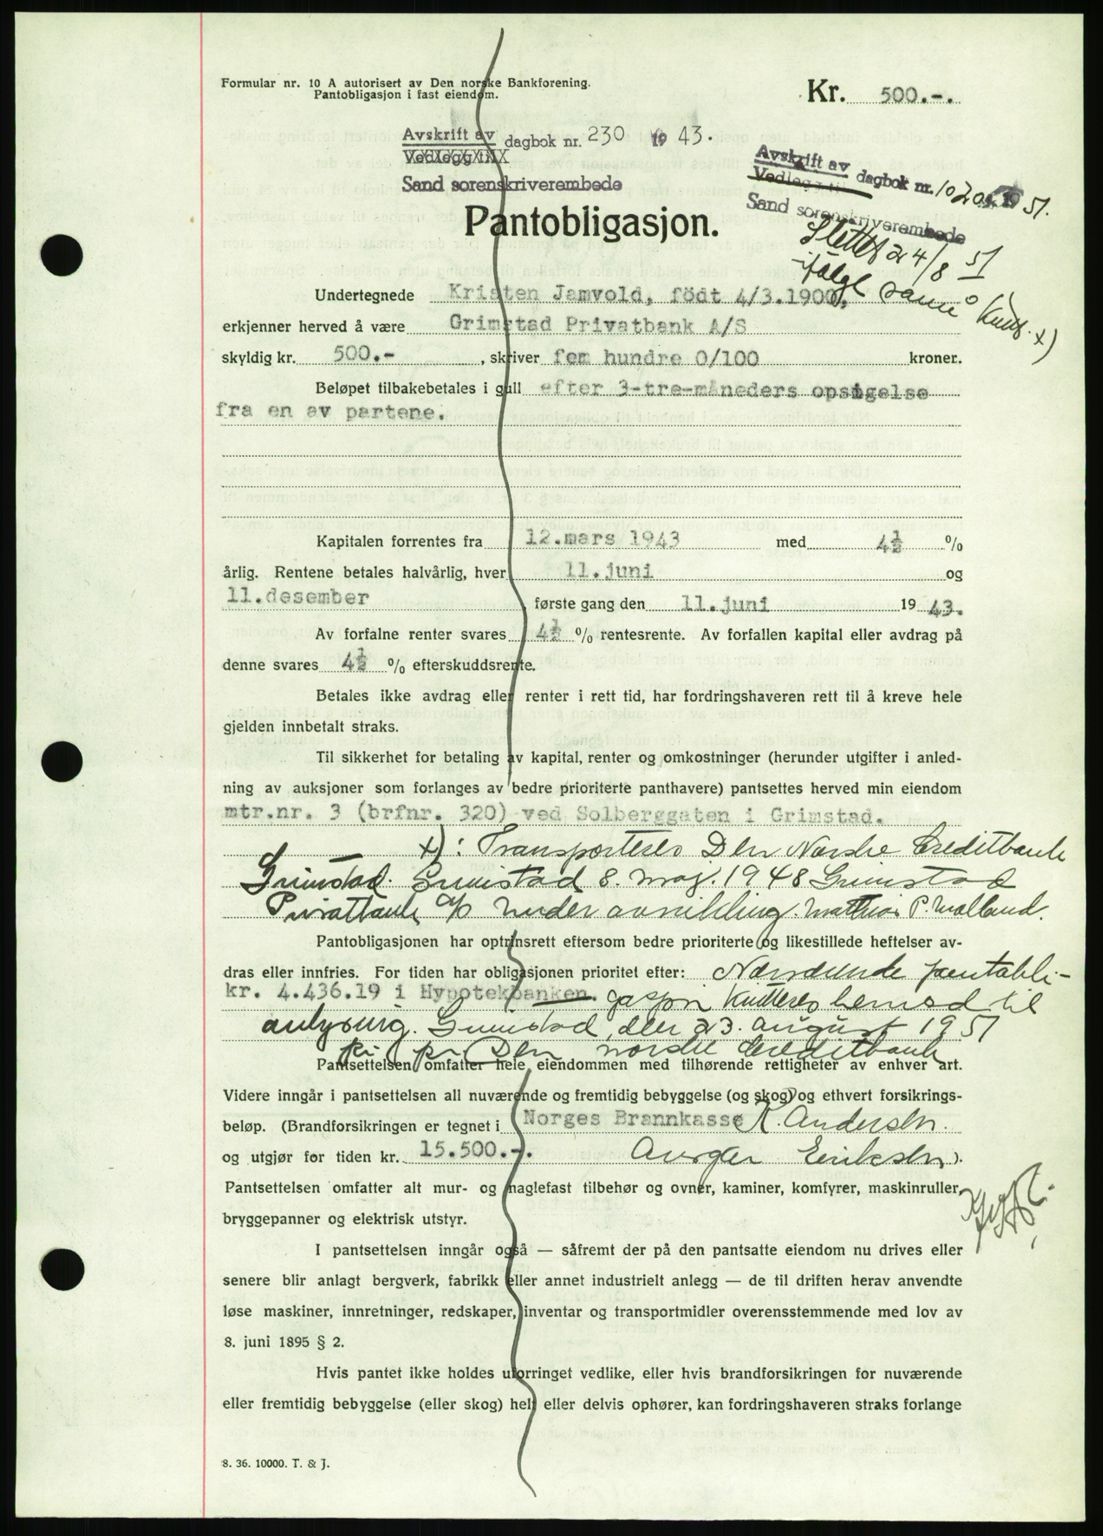 Formular nr. 10 A autorisert av Den norske Bankforening.
Pantobligasjon i fast eiendom.
Kr. 500.-.
Avskrift av
Vedlegg til
dagbok nr. 230 1943.
Sand sorenskriverembede
Avskrift av
Vedlegg til
dagbok nr. 1020 1951.
Sand sorenskriverembede
Pantobligasjon.
Slettet 24/8 51
ifølge samme kvitt. x)
Undertegnede Kristen Jamvold, født 4/3.1900,
erkjenner herved å være Grimstad Privatbank A/S
skyldig kr. 500.- , skriver fem hundre 0/100 kroner.
Beløpet tilbakebetales i gull efter 3-tre-måneders opsigelse
fra en av partene.
Kapitalen forrentes fra 12.mars 1943 med 4½ %
årlig. Rentene betales halvårlig, hver 11.juni og
11.desember , første gang den 11.juni 1943.
Av forfalne renter svares 4½ % rentesrente. Av forfallen kapital eller avdrag på
denne svares 4½ % efterskuddsrente.
Betales ikke avdrag eller renter i rett tid, har fordringshaveren rett til å kreve hele
gjelden innbetalt straks.
Til sikkerhet for betaling av kapital, renter og omkostninger (herunder utgifter i anled-
ning av auksjoner som forlanges av bedre prioriterte panthavere) pantsettes herved min eiendom
mtr.nr. 3 (brfnr. 320) ved Solberggaten i Grimstad.
x): Transporteres Den Norske Creditbank
Grimstad. Grimstad 8. mai. 1948 Grimstad
Privatbank A/S under avvikling. Mathias P. Malland.
Pantobligasjonen har optrinsrett eftersom bedre prioriterte og likestillede heftelser av-
dras eller innfries. For tiden har obligasjonen prioritet efter: Nærværende pantobli-
kr. 4.436.19 i Hypotekbanken. gasjon kvitteres herved til
avlysning. Grimstad, den 23. august 1951
pr. pr. Den norske Creditbank
Pantsettelsen omfatter hele eiendommen med tilhørende rettigheter av enhver art.
Videre inngår i pantsettelsen all nuværende og fremtidig bebyggelse (og skog) og ethvert forsikrings-
beløp. (Brandforsikringen er tegnet i Norges Brannkasse K. Andersen.
og utgjør for tiden kr. 15.500.-. Eriksen ).
Pantsettelsen omfatter alt mur- og naglefast tilbehør og ovner, kaminer, komfyrer, maskinruller,
bryggepanner og elektrisk utstyr.
I pantsettelsen inngår også — såfremt der på den pantsatte eiendom nu drives eller
senere blir anlagt bergverk, fabrikk eller annet industrielt anlegg — de til driften herav anvendte
løse maskiner, innretninger, redskaper, inventar og transportmidler overensstemmende med lov av
8. juni 1895 § 2.
Hvis pantet ikke holdes uforringet vedlike, eller hvis brandforsikringen for nuværende
eller fremtidig bebyggelse (eller skog) helt eller delvis ophører, kan fordringshaveren straks forlange
8. 36. 10000. T. & J.